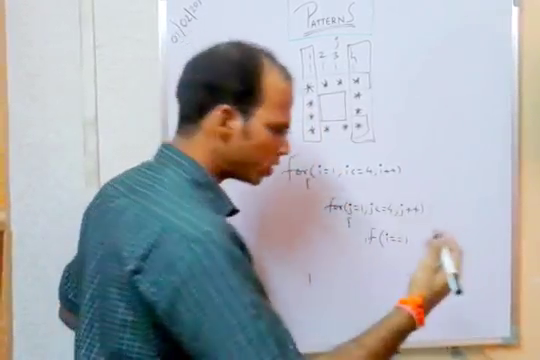 01/02/201
PATTERNS
j
1 2 3 4
* * * *
* *
* *
* * * *
for(i=1,i<=4,i++)
{
for(j=1,j<=4,j++)
{
if(i==1